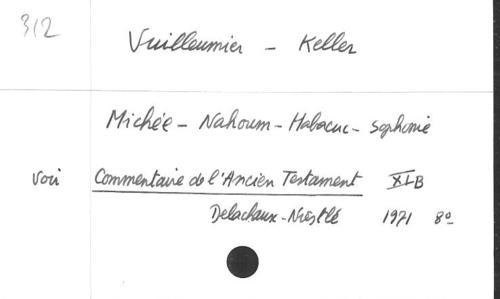 312
Vuilleumier - Keller
Michée - Nahoum - Habacuc - Sophonie
voir Commentaire de l'Ancien Testament XI B
Delachaux-Niestlé 1971 8º